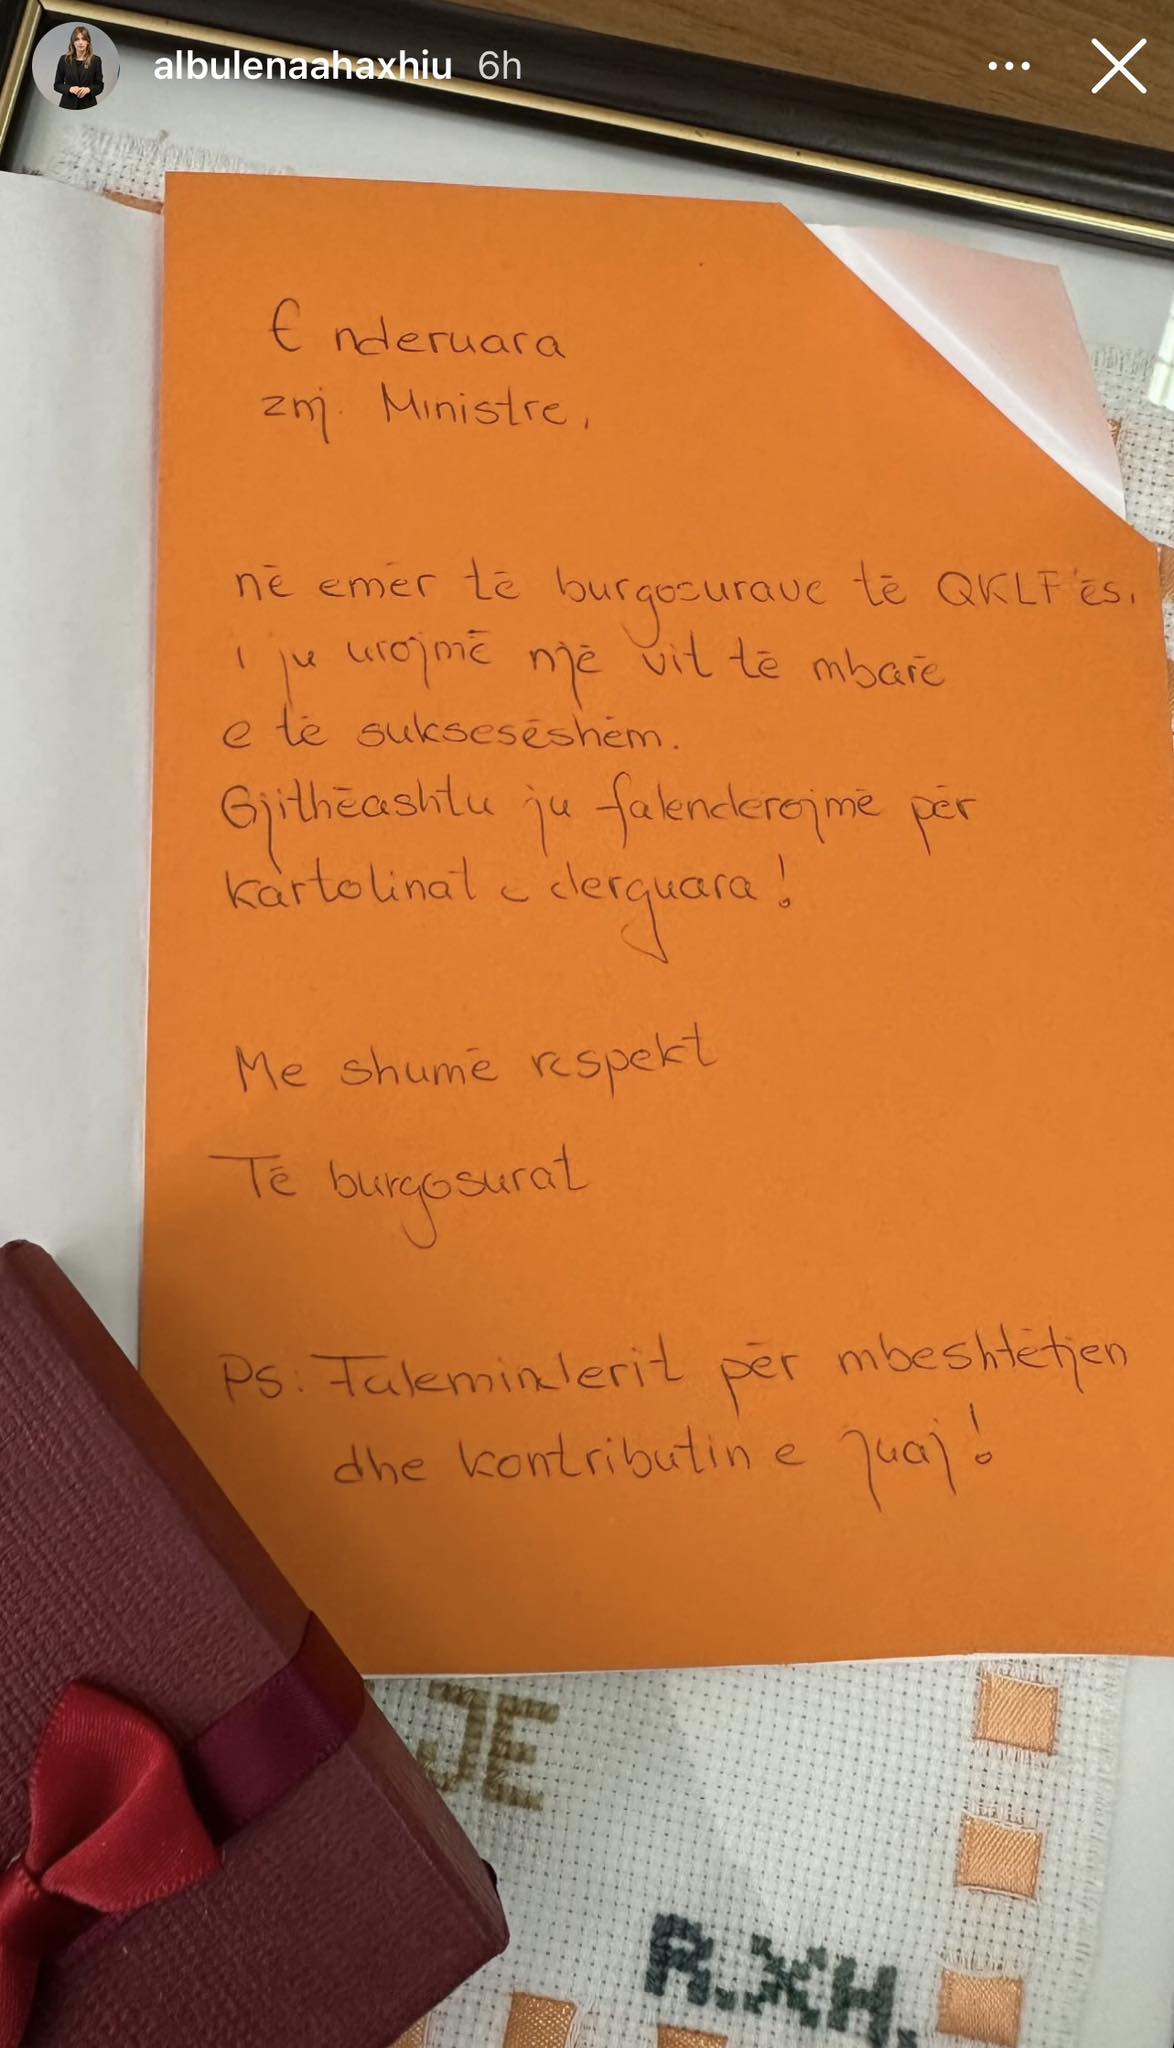 albulenaahaxhiu 6h
E nderuara
znj. Ministre,
në emër të burgosurave të QKLF'ës,
i ju urojmë një vit të mbarë
e të suksesëshëm.
Gjithëashtu ju falenderojmë për
kartolinat e derguara!
Me shumë respekt
Të burgosurat
Ps: Faleminderit për mbeshtëtjen
dhe kontributin e juaj!
JE
R.XH.